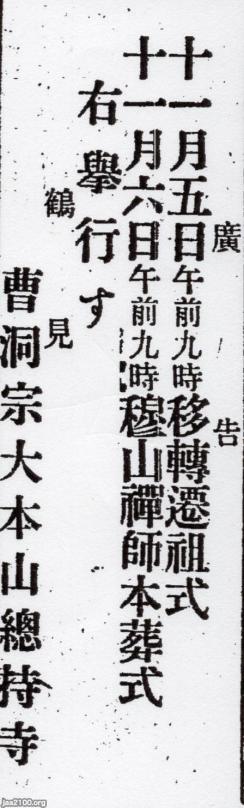 廣告
十一月五日午前九時移轉遷祖式
十一月六日午前九時穆山禪師本葬式
右擧行す
鶴見
曹洞宗大本山總持寺
jaa2100.org